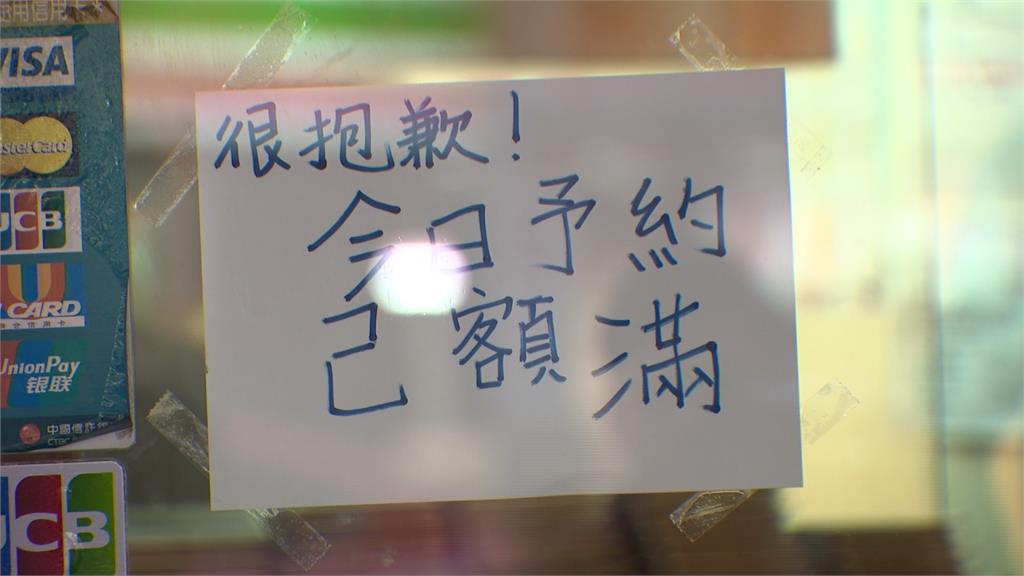 用信用卡
VISA
sterCard
JCB
U
CARD
聯合信用卡
UnionPay
银联
中國信託
CTBC
JCB
很抱歉!
今日予約
己額滿